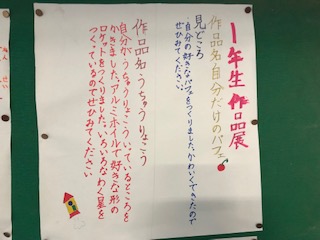 1年生 作品展
作品名 自分だけのパフェ
見どころ
自分の好きなパフェをつくりました。かわいくできたので
ぜひみてください。
作品名 うちゅうりょこう
自分がうちゅうりょこういっているところを
かきました。アルミホイルで好きな形の
ロケットをつくりました。いろいろなわく星を
つくっているのでぜひみてください